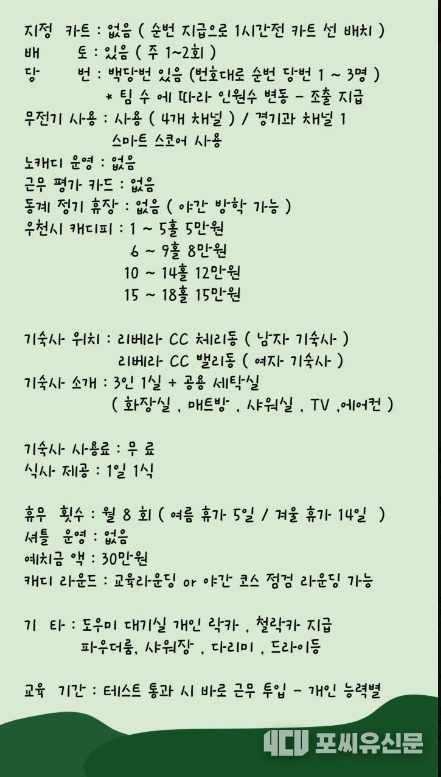 지정 카트 : 없음 ( 순번 지급으로 1시간전 카트 선 배치 )
배 토 : 있음 ( 주 1~2회 )
당 번 : 백당번 있음 (번호대로 순번 당번 1 ~ 3명 )
* 팀 수 에 따라 인원수 변동 - 조출 지급
무전기 사용 : 사용 ( 4개 채널 ) / 경기과 채널 1
스마트 스코어 사용
노캐디 운영 : 없음
근무 평가 카드 : 없음
동계 정기 휴장 : 없음 ( 야간 방학 가능 )
우천시 캐디피 : 1 ~ 5홀 5만원
6 ~ 9홀 8만원
10 ~ 14홀 12만원
15 ~ 18홀 15만원
기숙사 위치 : 리베라 CC 체리동 ( 남자 기숙사 )
리베라 CC 밸리동 ( 여자 기숙사 )
기숙사 소개 : 3인 1실 + 공용 세탁실
( 화장실 , 매트방 , 샤워실 , TV ,에어컨 )
기숙사 사용료 : 무 료
식사 제공 : 1일 1식
휴무 횟수 : 월 8 회 ( 여름 휴가 5일 / 겨울 휴가 14일 )
셔틀 운영 : 없음
예치금 액 : 30만원
캐디 라운드 : 교육라운딩 or 야간 코스 점검 라운딩 가능
기 타 : 도우미 대기실 개인 락카 , 철락카 지급
파우더룸, 샤워장 , 다리미 , 드라이등
교육 기간 : 테스트 통과 시 바로 근무 투입 - 개인 능력별
4CU 포씨유신문